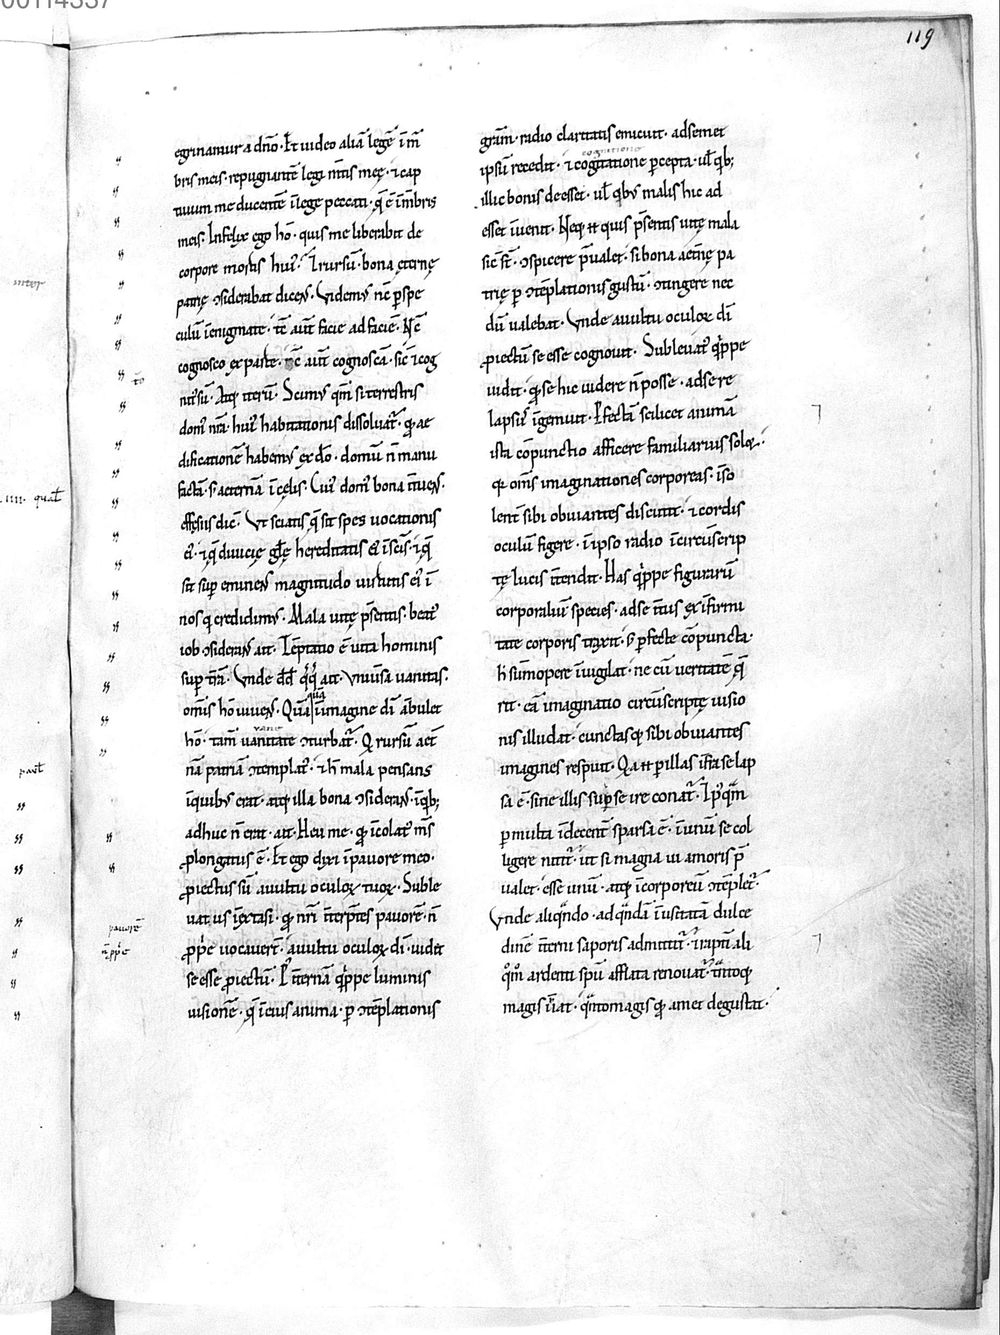 119
egrinamur a dño· Et uideo aliā legē ī mē
bris meis· repugnantē legi mtis meę· ⁊ cap
tiuum me ducentē ī lege peccati· q̄ ē ī mēbris
meis· Infelix ego hō· quis me liberabit de
corpore mortis hui'· ⁊ rursū· bona ęternę
patrię ↄsiderabat dicens· Videm' nc̄ p spe
culū ī enigmate· tc̄ aut̄ facie ad faciē· Nc̄
cognosco ex parte· tc̄ aut̄ cognoscā· sic̄ ⁊ cog
nit' sū· Atq; iterū· Scim' qm̄ si terrestris
dom' nr̄a hui' habitationis dissoluat᷑· qd ae
dificationē habem' ex do· domū n̄ manu
factā· s; aeternā ī cęlis· Cui' dom' bona ītuens·
effęsiis dic̄· Vt sciatis q̄ sit spes uocationis
ei'· ⁊ q̄ diuicię glę hereditatis ei' ī scis· ⁊ q̄
sit sup eminens magnitudo uirtutis ei' ī
nos q credidim'· Mala uitę p̄sentis· beat'
iob ↄsiderans ait· Tēptatio ē uita hominis
sup tr̄ā· Vnde dd̄ qq; ait· Vniūsa uanitas·
omis hō uiuens· Quāquā ī imagine dī ābulet
hō· tam̄ uanitate ↄturbat᷑· Q rursū aet̄
nā patriā ↄtemplat᷑· ⁊ h̄ mala pensans
ī quib' erat· atq; illa bona ↄsiderans· ī qb;
adhuc n̄ erat· ait· Heu me· qd īcolat' ms̄
plongatus ē· Et ego dixi ī pauore meo·
piectus sū a uultu oculoꝝ tuoꝝ· Suble
uatus ī extasi· qd nr̄i īterp̄tes pauorē· n̄
pprie uocauer̄t· a uultu oculoꝝ dī· uidit
se esse piectū· P' īternā q̄ppe luminis
uisionē· q̄ ī eius anima· p ↄtēplationis
grām· radio claritatis emicuit· ad semet
ipsū recedit· ⁊ cogitatione pcepta· ul̄ qb;
cognitione
illic bonis deesset· ul̄ qb' malis hic ad
esset īuenit· Neq; ҥ quis p̄sentis uitę mala
sic̄ st̄· ↄspicere p̄ualet· si bona aetnę pa
trię p ↄtēplationis gustū· ↄtingere nec
dū ualebat· Vnde a uultu oculoꝝ dī
piectū se esse cognouit· Subleuat' q̄ppe
uidit· qd se hic uidere n̄ posse· ad se re
lapsus īgemuit· Pfectā scilicet animā
ista cōpunctio afficere familiarius solet·
qꝛ omīs imaginationes corporeas· īso
lent̄ sibi obuiantes discutit· ⁊ cordis
oculum figere· ī ipso radio īcircūscrip
tę lucis ītendit· Has q̄ppe figurarū
corporaliū species· ad se īt' ex ī firmi
tate corporis traxit· s; pfecte cōpuncta·
h̄ sūmopere īuigilat· ne cū ueritatē q̄
rit· eā imaginatio circūscriptę uisio
nis illudat· cunctasq; sibi obuiantes
imagines respuit· Qa ҥ p illas īfra se lap
sa ē· sine illis supse ire conat᷑· ⁊ p'qm̄
p multa īdecent̄ sparsa ē· ī unū se col
ligere nitit᷑· ut si magna ui amoris p̄
ualet· esse unū· atq; īcorporeū ↄtēplet᷑·
Vnde aliqn̄do· ad qn̄dā īusitatā dulce
dinē īterni saporis admittit᷑· ⁊ raptī ali
q̄m ardenti sp̄u afflata renouat᷑· tn̄toq;
magis īhiat· qn̄tomagis qd amet degustat·
pauorē
n̄ pprie
tc̄